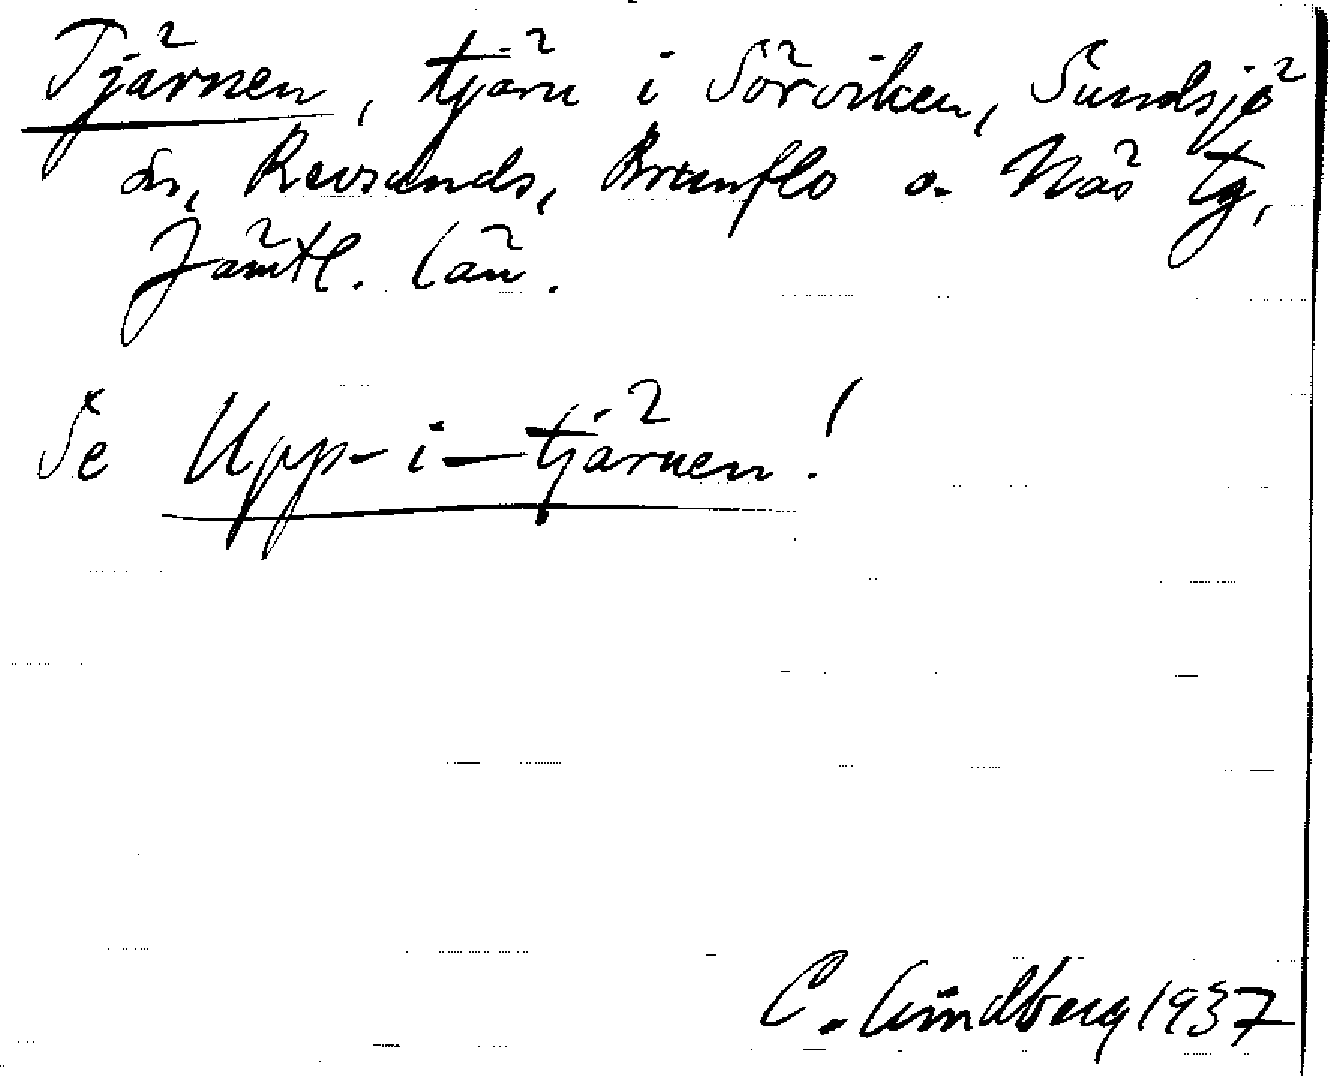 Tjärnen, tjärn i Sörviken, Sundsjö
sn, Revsunds, Brunflo o. Näs tg,
Jämtl. län.
Se Upp-i-tjärnen!
C. Lindberg 1937